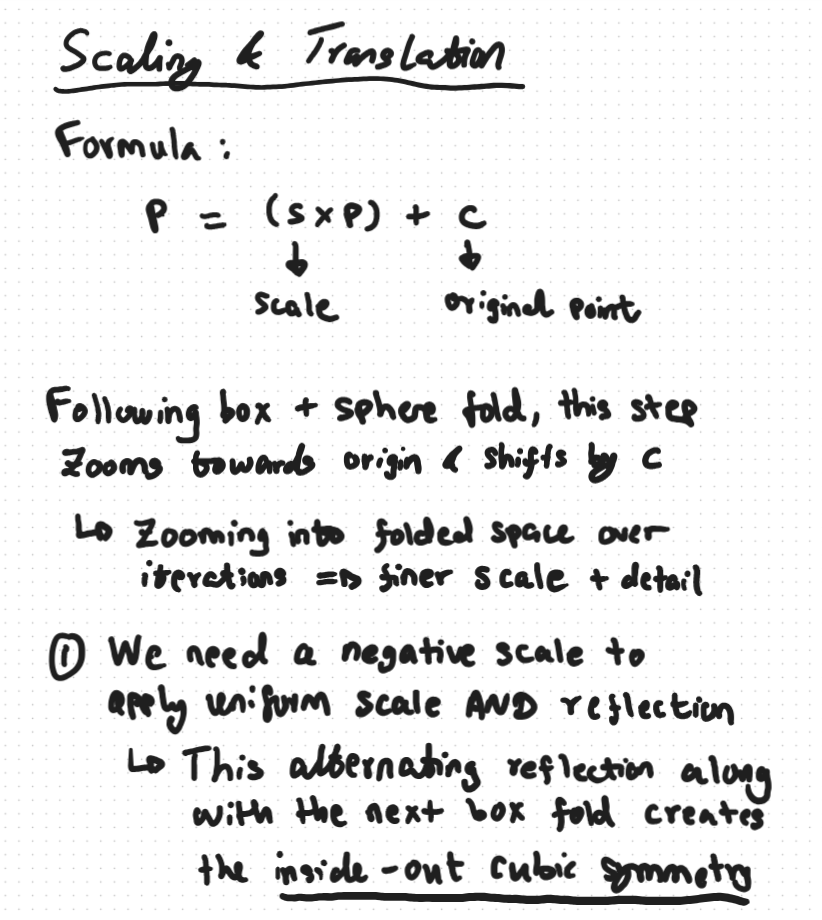 Scaling & Translation
Formula :
P = (S × P) + C
↓ ↓
scale original point
Following box + sphere fold, this step
Zooms towards origin & shifts by C
↳ Zooming into folded space over
iterations => finer scale + detail
① We need a negative scale to
apply uniform scale AND reflection
↳ This alternating reflection along
with the next box fold creates
the inside-out cubic symmetry